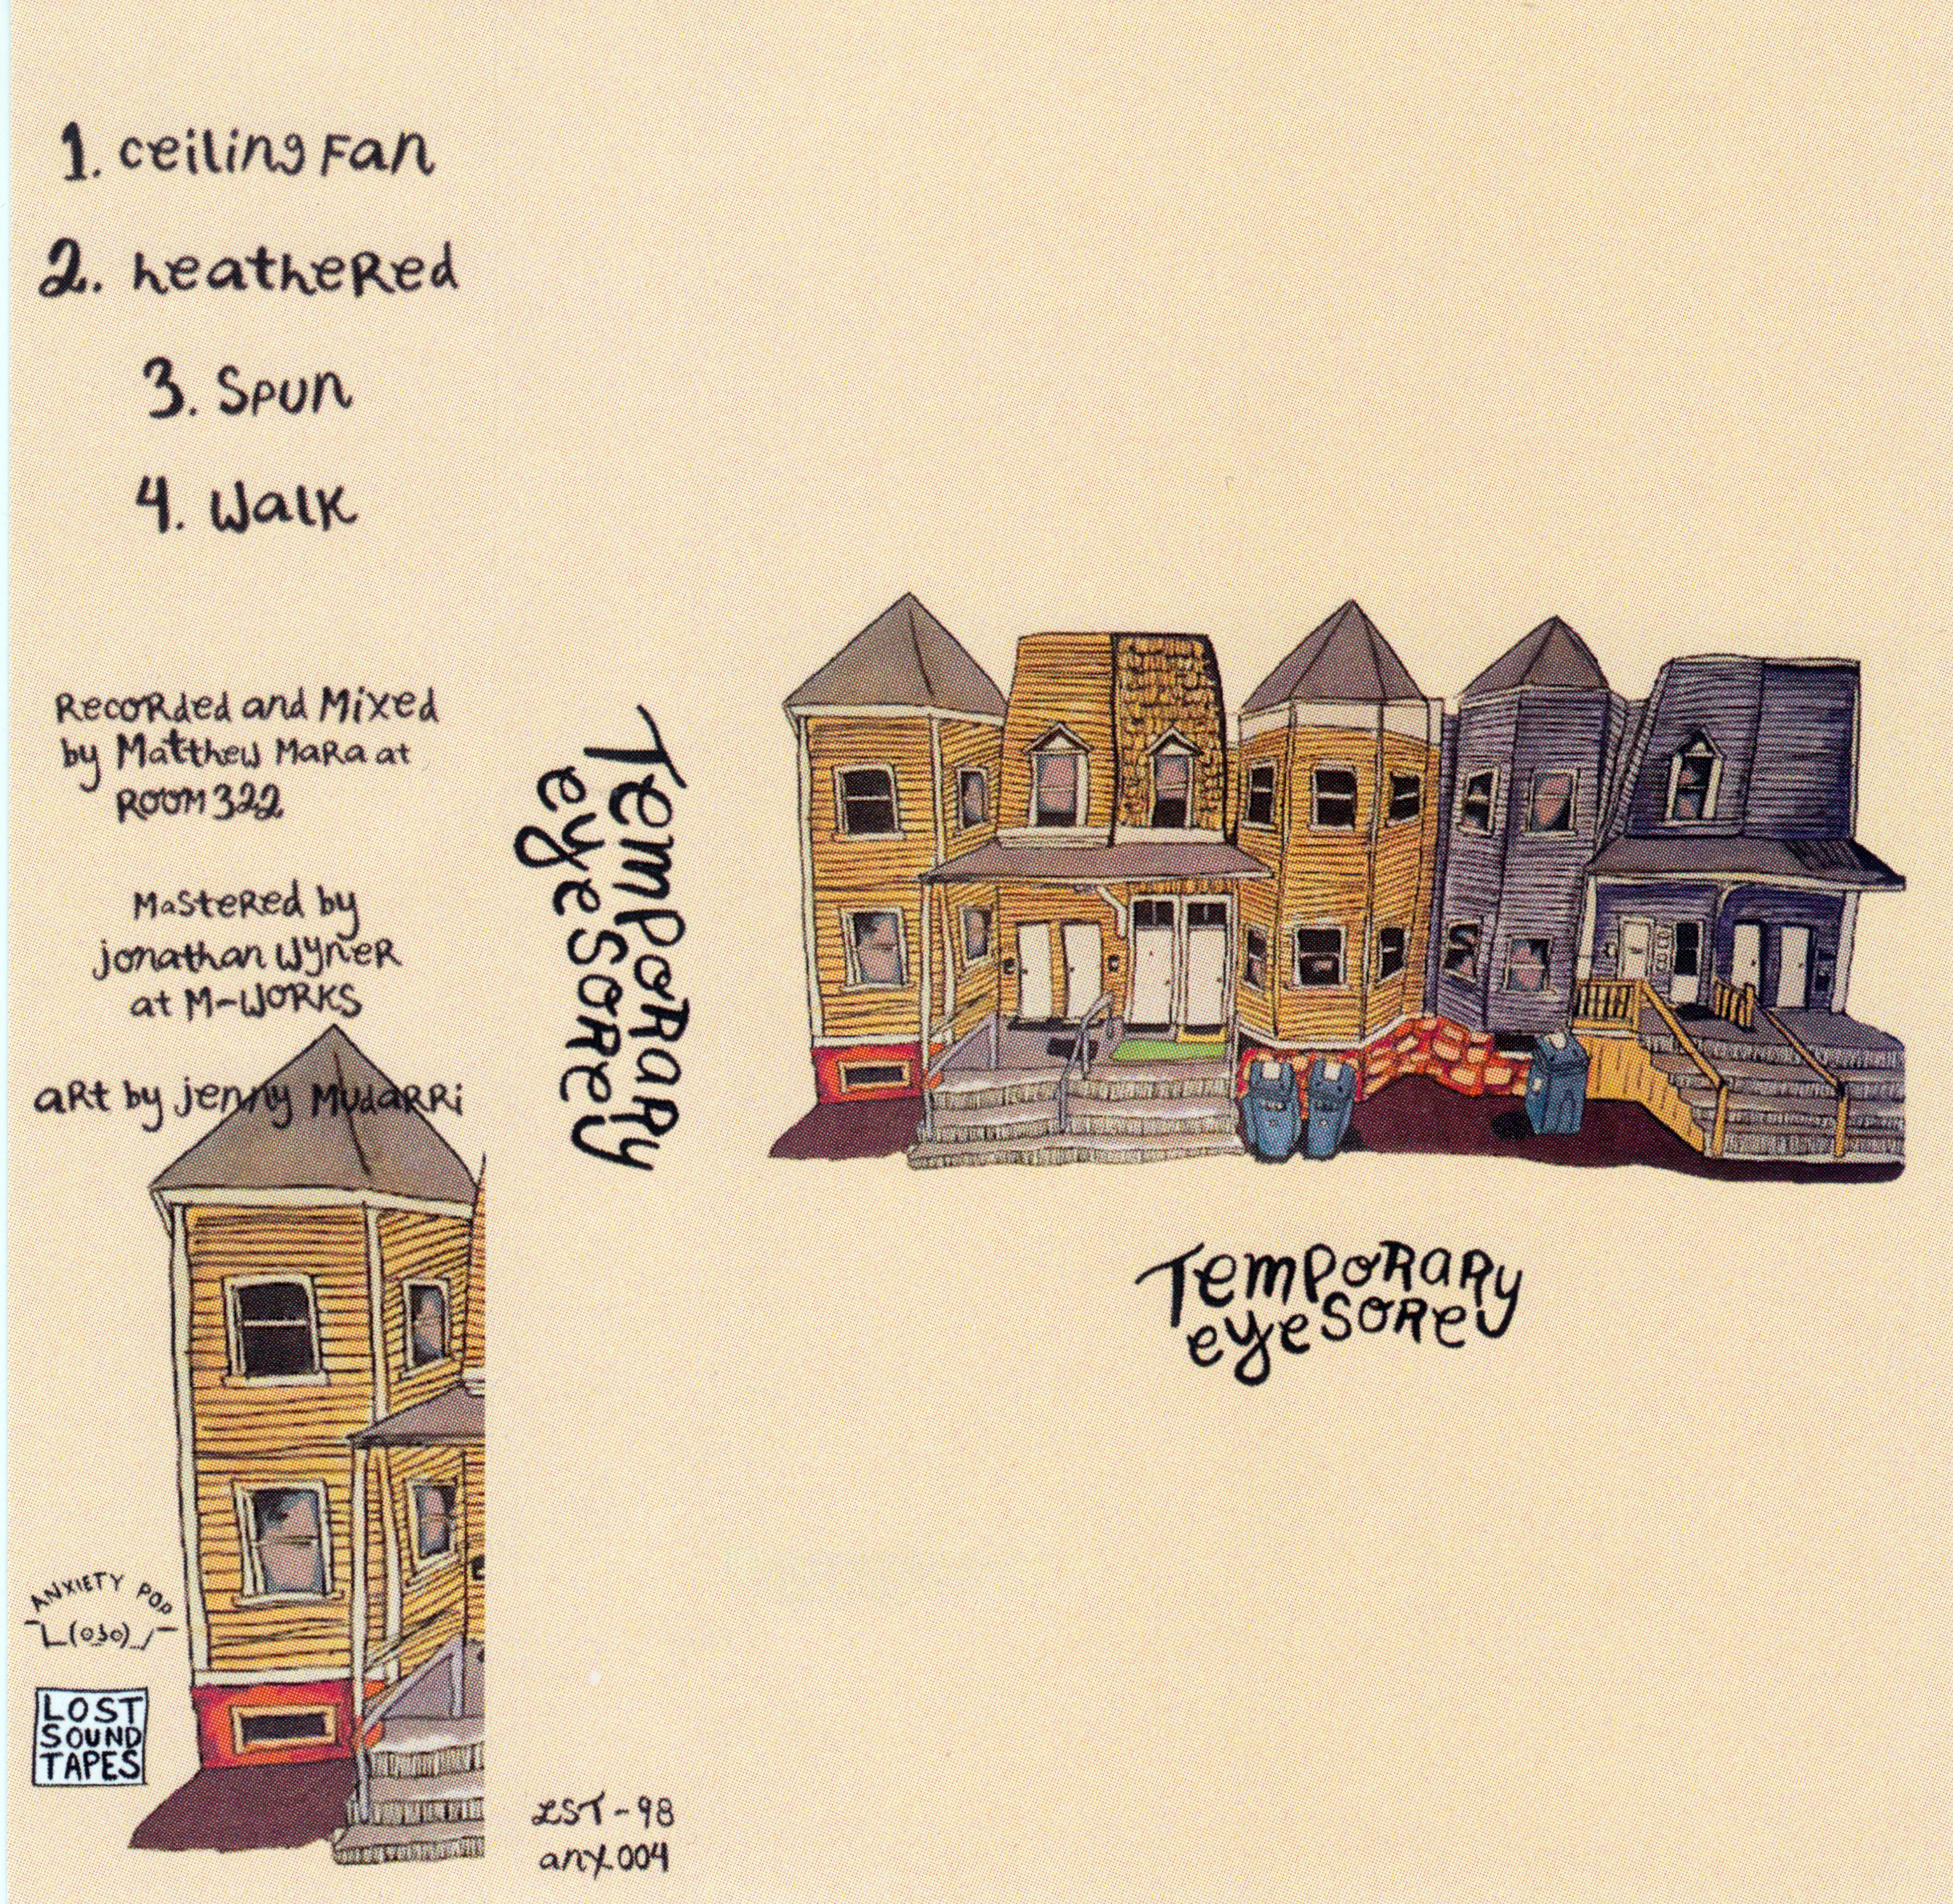 1. ceiling Fan
2. heatheRed
3. Spun
4. Walk
RecoRded and Mixed
by Matthew MaRa at
ROOM 322
MasteRed by
jonathan WyneR
at M-WORKS
aRt by jenny MudaRRi
ANXIETY POP
¯\_(o3o)_/¯
LOST
SOUND
TAPES
TempoRaRy
eyesoRe
LST-98
anx.004
TempoRaRy
eyesoRe